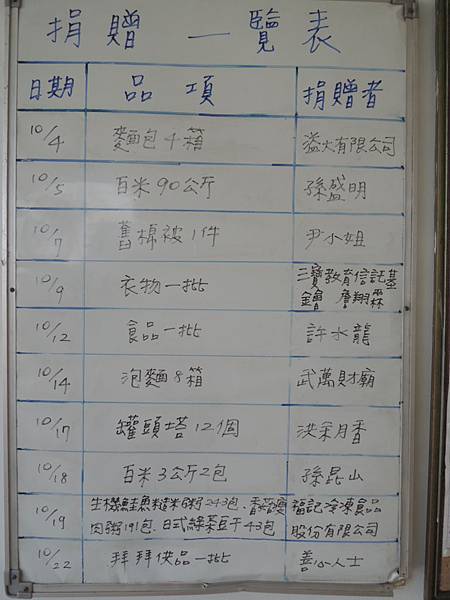 捐贈一覽表
日期 品項 捐贈者
10/4 麵包4箱 溢火有限公司
10/5 百米90公斤 孫盛明
10/7 舊棉被1件 尹小姐
10/9 衣物一批 三寶教育信託基
詹翔霖
10/12 食品一批 許水龍
10/14 泡麵8箱 武萬財廟
10/17 罐頭塔12個 洪采月香
10/18 百米3公斤2包 孫昆山
10/19 生機鮭魚糙米粥243包、香菇瘦 福記冷凍食品
肉粥191包、日式綠茶豆干43包 股份有限公司
10/22 拜拜供品一批 善心人士